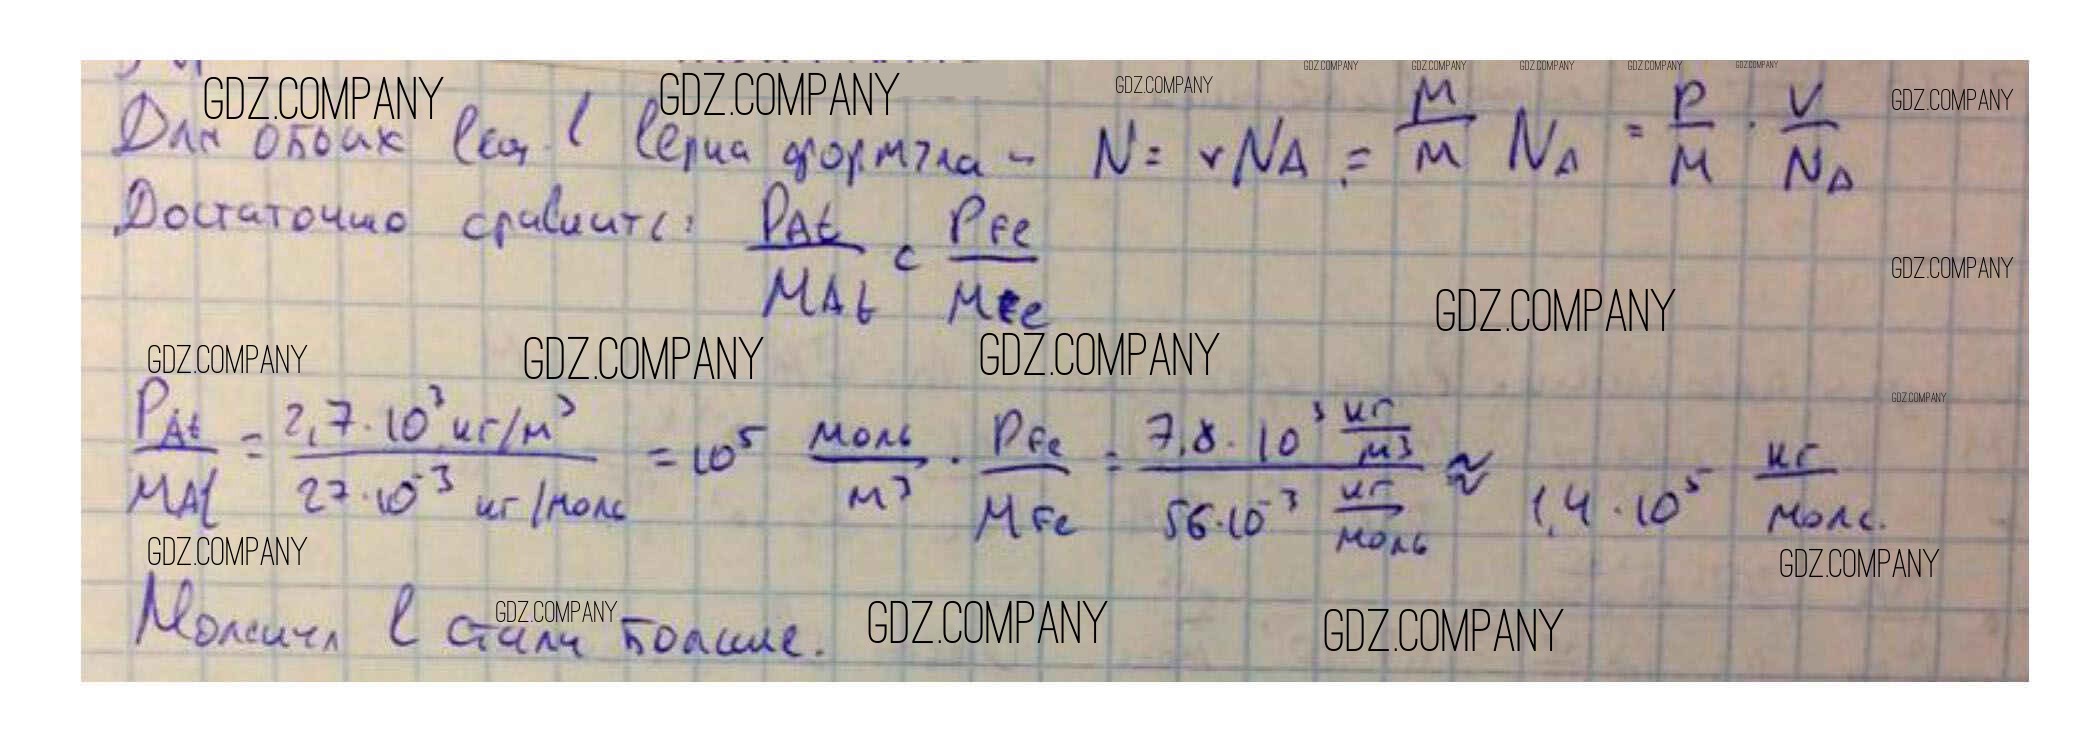 GDZ.COMPANY GDZ.COMPANY GDZ.COMPANY GDZ.COMPANY GDZ.COMPANY GDZ.COMPANY GDZ.COMPANY GDZ.COMPANY GDZ.COMPANY
Для обоих верна формула - N = νN_A = m/M N_A = ρ/M · V/N_A
Достаточно сравнить: ρ_Al/M_Al с ρ_Fe/M_Fe
GDZ.COMPANY
GDZ.COMPANY
GDZ.COMPANY GDZ.COMPANY GDZ.COMPANY
GDZ.COMPANY
ρ_Al/M_Al = 2,7·10³ кг/м³ / 27·10⁻³ кг/моль = 10⁵ моль/м³ · ρ_Fe/M_Fe = 7,8·10³ кг/м³ / 56·10⁻³ кг/моль ≈ 1,4·10⁵ кг/моль.
GDZ.COMPANY GDZ.COMPANY
Молекул в стали больше.
GDZ.COMPANY GDZ.COMPANY GDZ.COMPANY